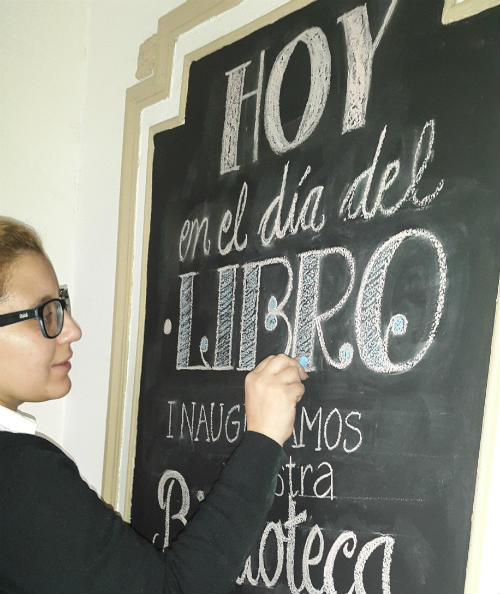 HOY
en el día del
LIBRO
INAUG AMOS
stra
B ioteca